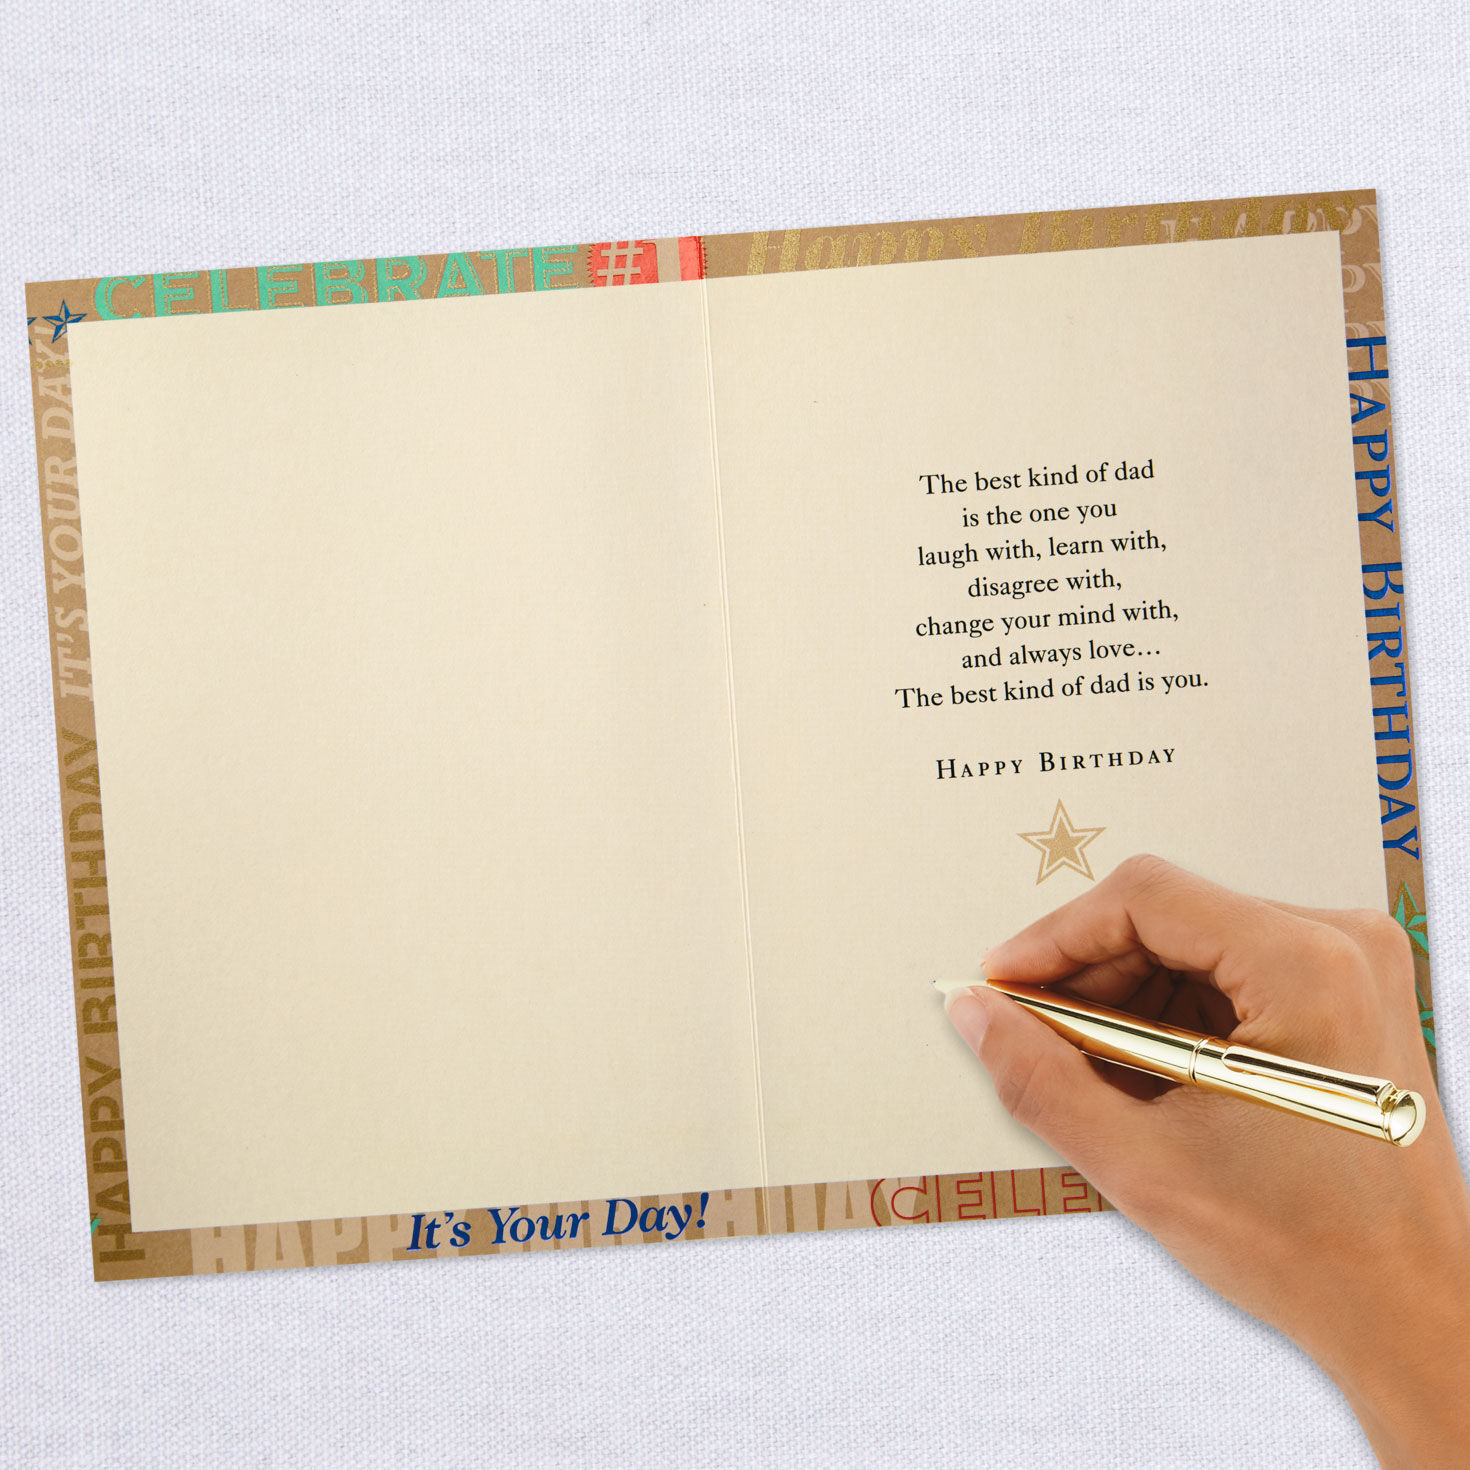 CELEBRATE #1
Happy Birthday
IT'S YOUR DAY!
HAPPY BIRTHDAY
HAPPY BIRTHDAY
The best kind of dad
is the one you
laugh with, learn with,
disagree with,
change your mind with,
and always love…
The best kind of dad is you.
HAPPY BIRTHDAY
HAPPY BIRTHDAY
It's Your Day!
CELE